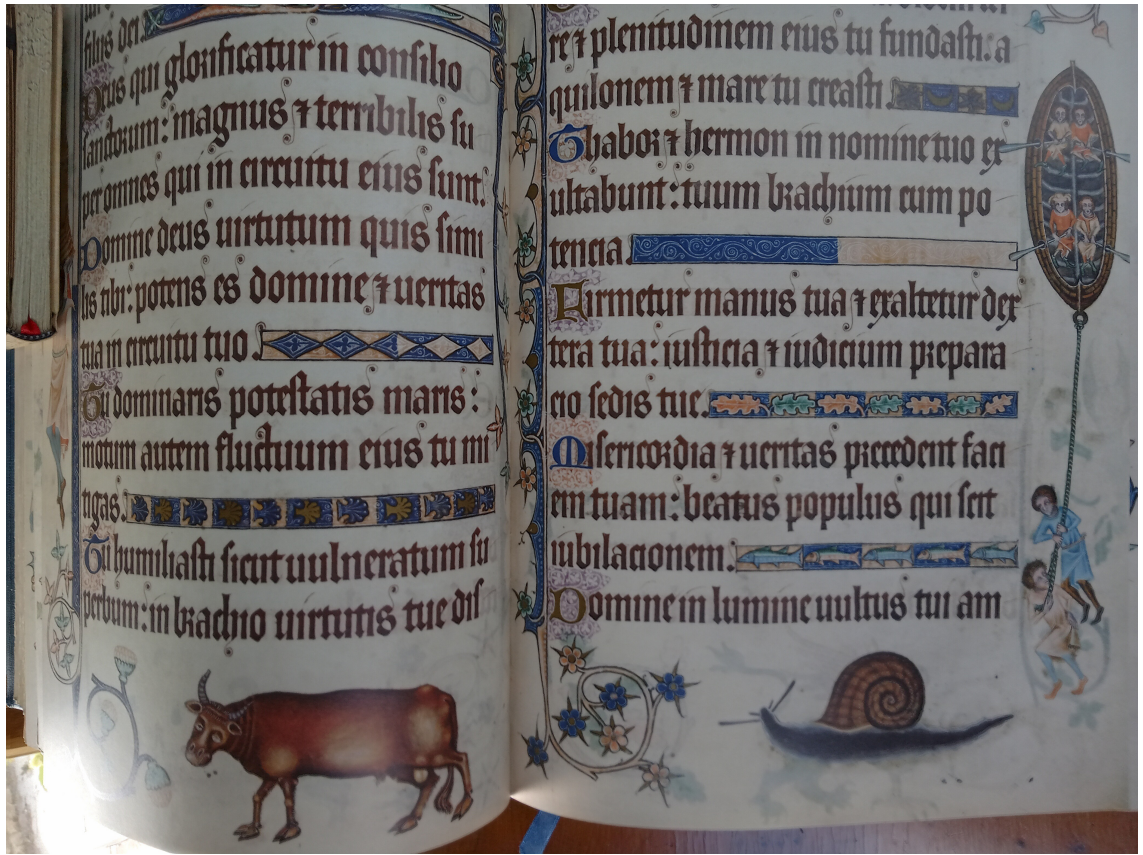 filius dei
Deus qui glorificatur in consilio
sanctorum: magnus ⁊ terribilis su
per omnes qui in circuitu eius sunt.
Domine deus uirtutum quis simi
lis tibi: potens es domine ⁊ ueritas
tua in circuitu tuo.
Tu dominaris potestatis maris:
motum autem fluctuum eius tu mi
tigas.
Tu humiliasti sicut uulneratum su
perbum: in brachio uirtutis tue dis
re ⁊ plenitudinem eius tu fundasti: a
quilonem ⁊ mare tu creasti.
Thabor ⁊ hermon in nomine tuo ex
ultabunt: tuum brachium cum po
tencia.
Firmetur manus tua ⁊ exaltetur dex
tera tua: iusticia ⁊ iudicium prepara
cio sedis tue.
Misericordia ⁊ ueritas precedent faci
em tuam: beatus populus qui scit
iubilacionem.
Domine in lumine uultus tui am